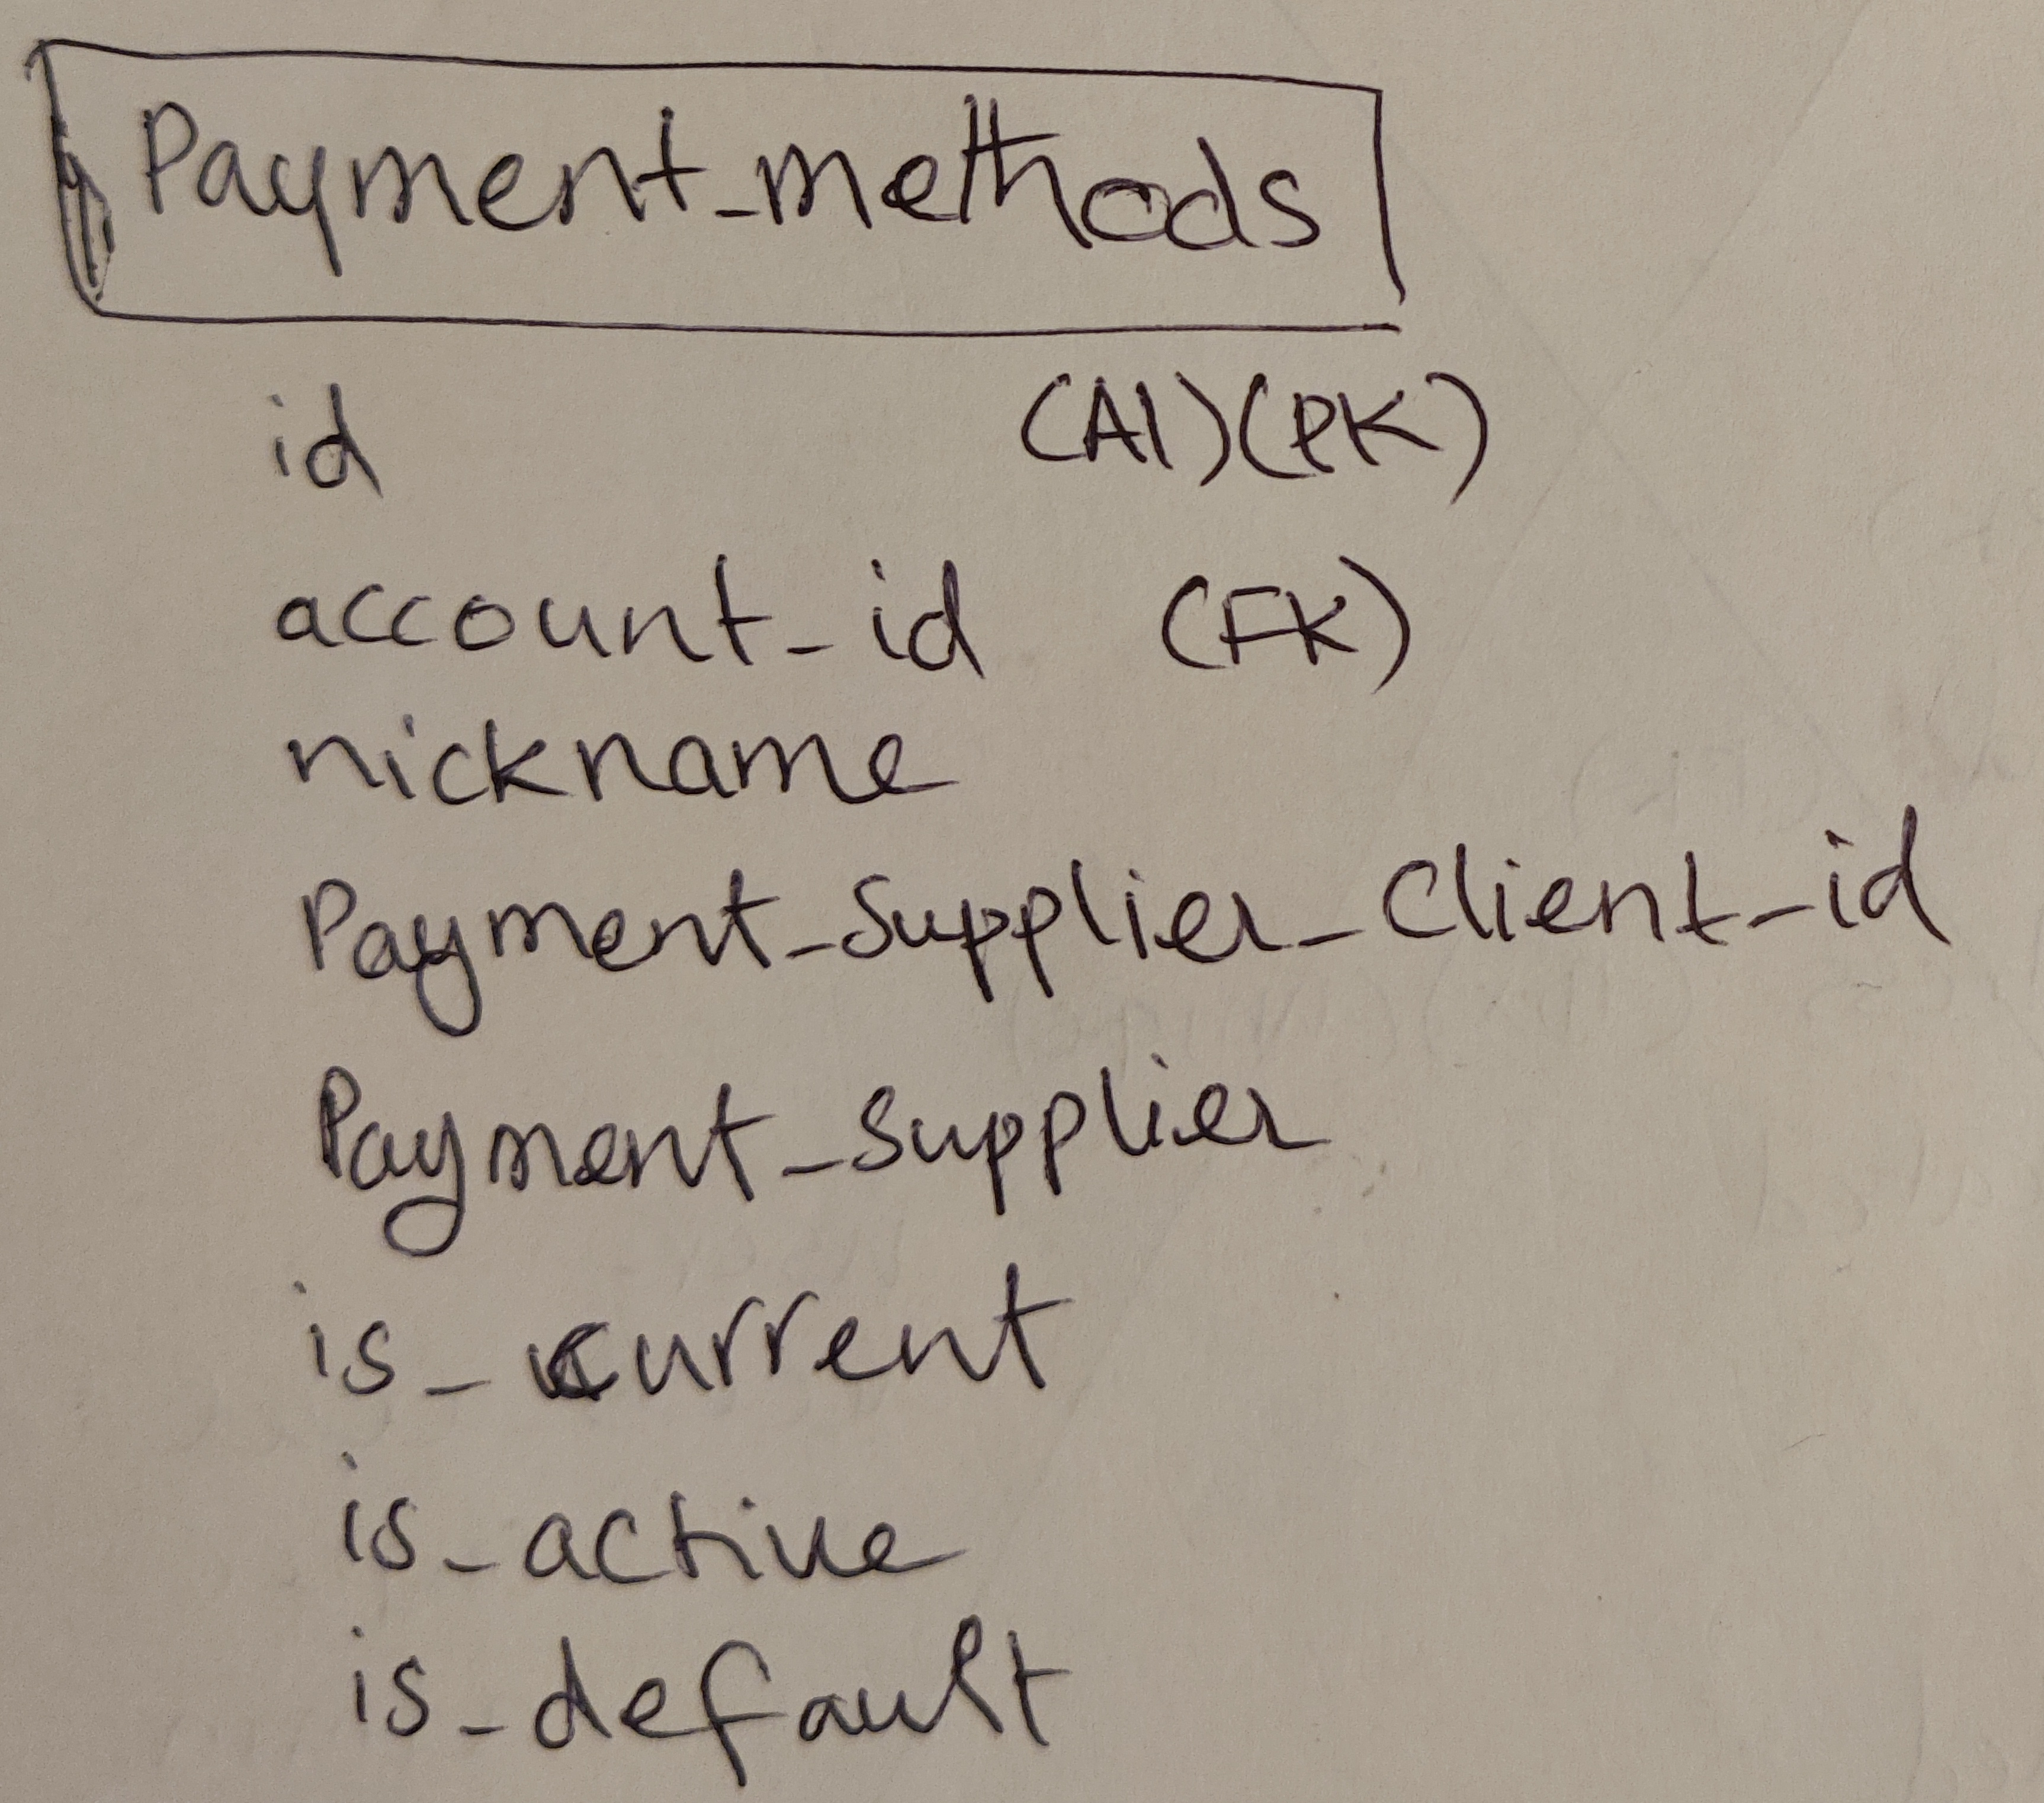 Payment_methods
id (AI)(PK)
account_id (FK)
nickname
Payment_Supplier_Client_id
Payment_Supplier
is_current
is_active
is_default